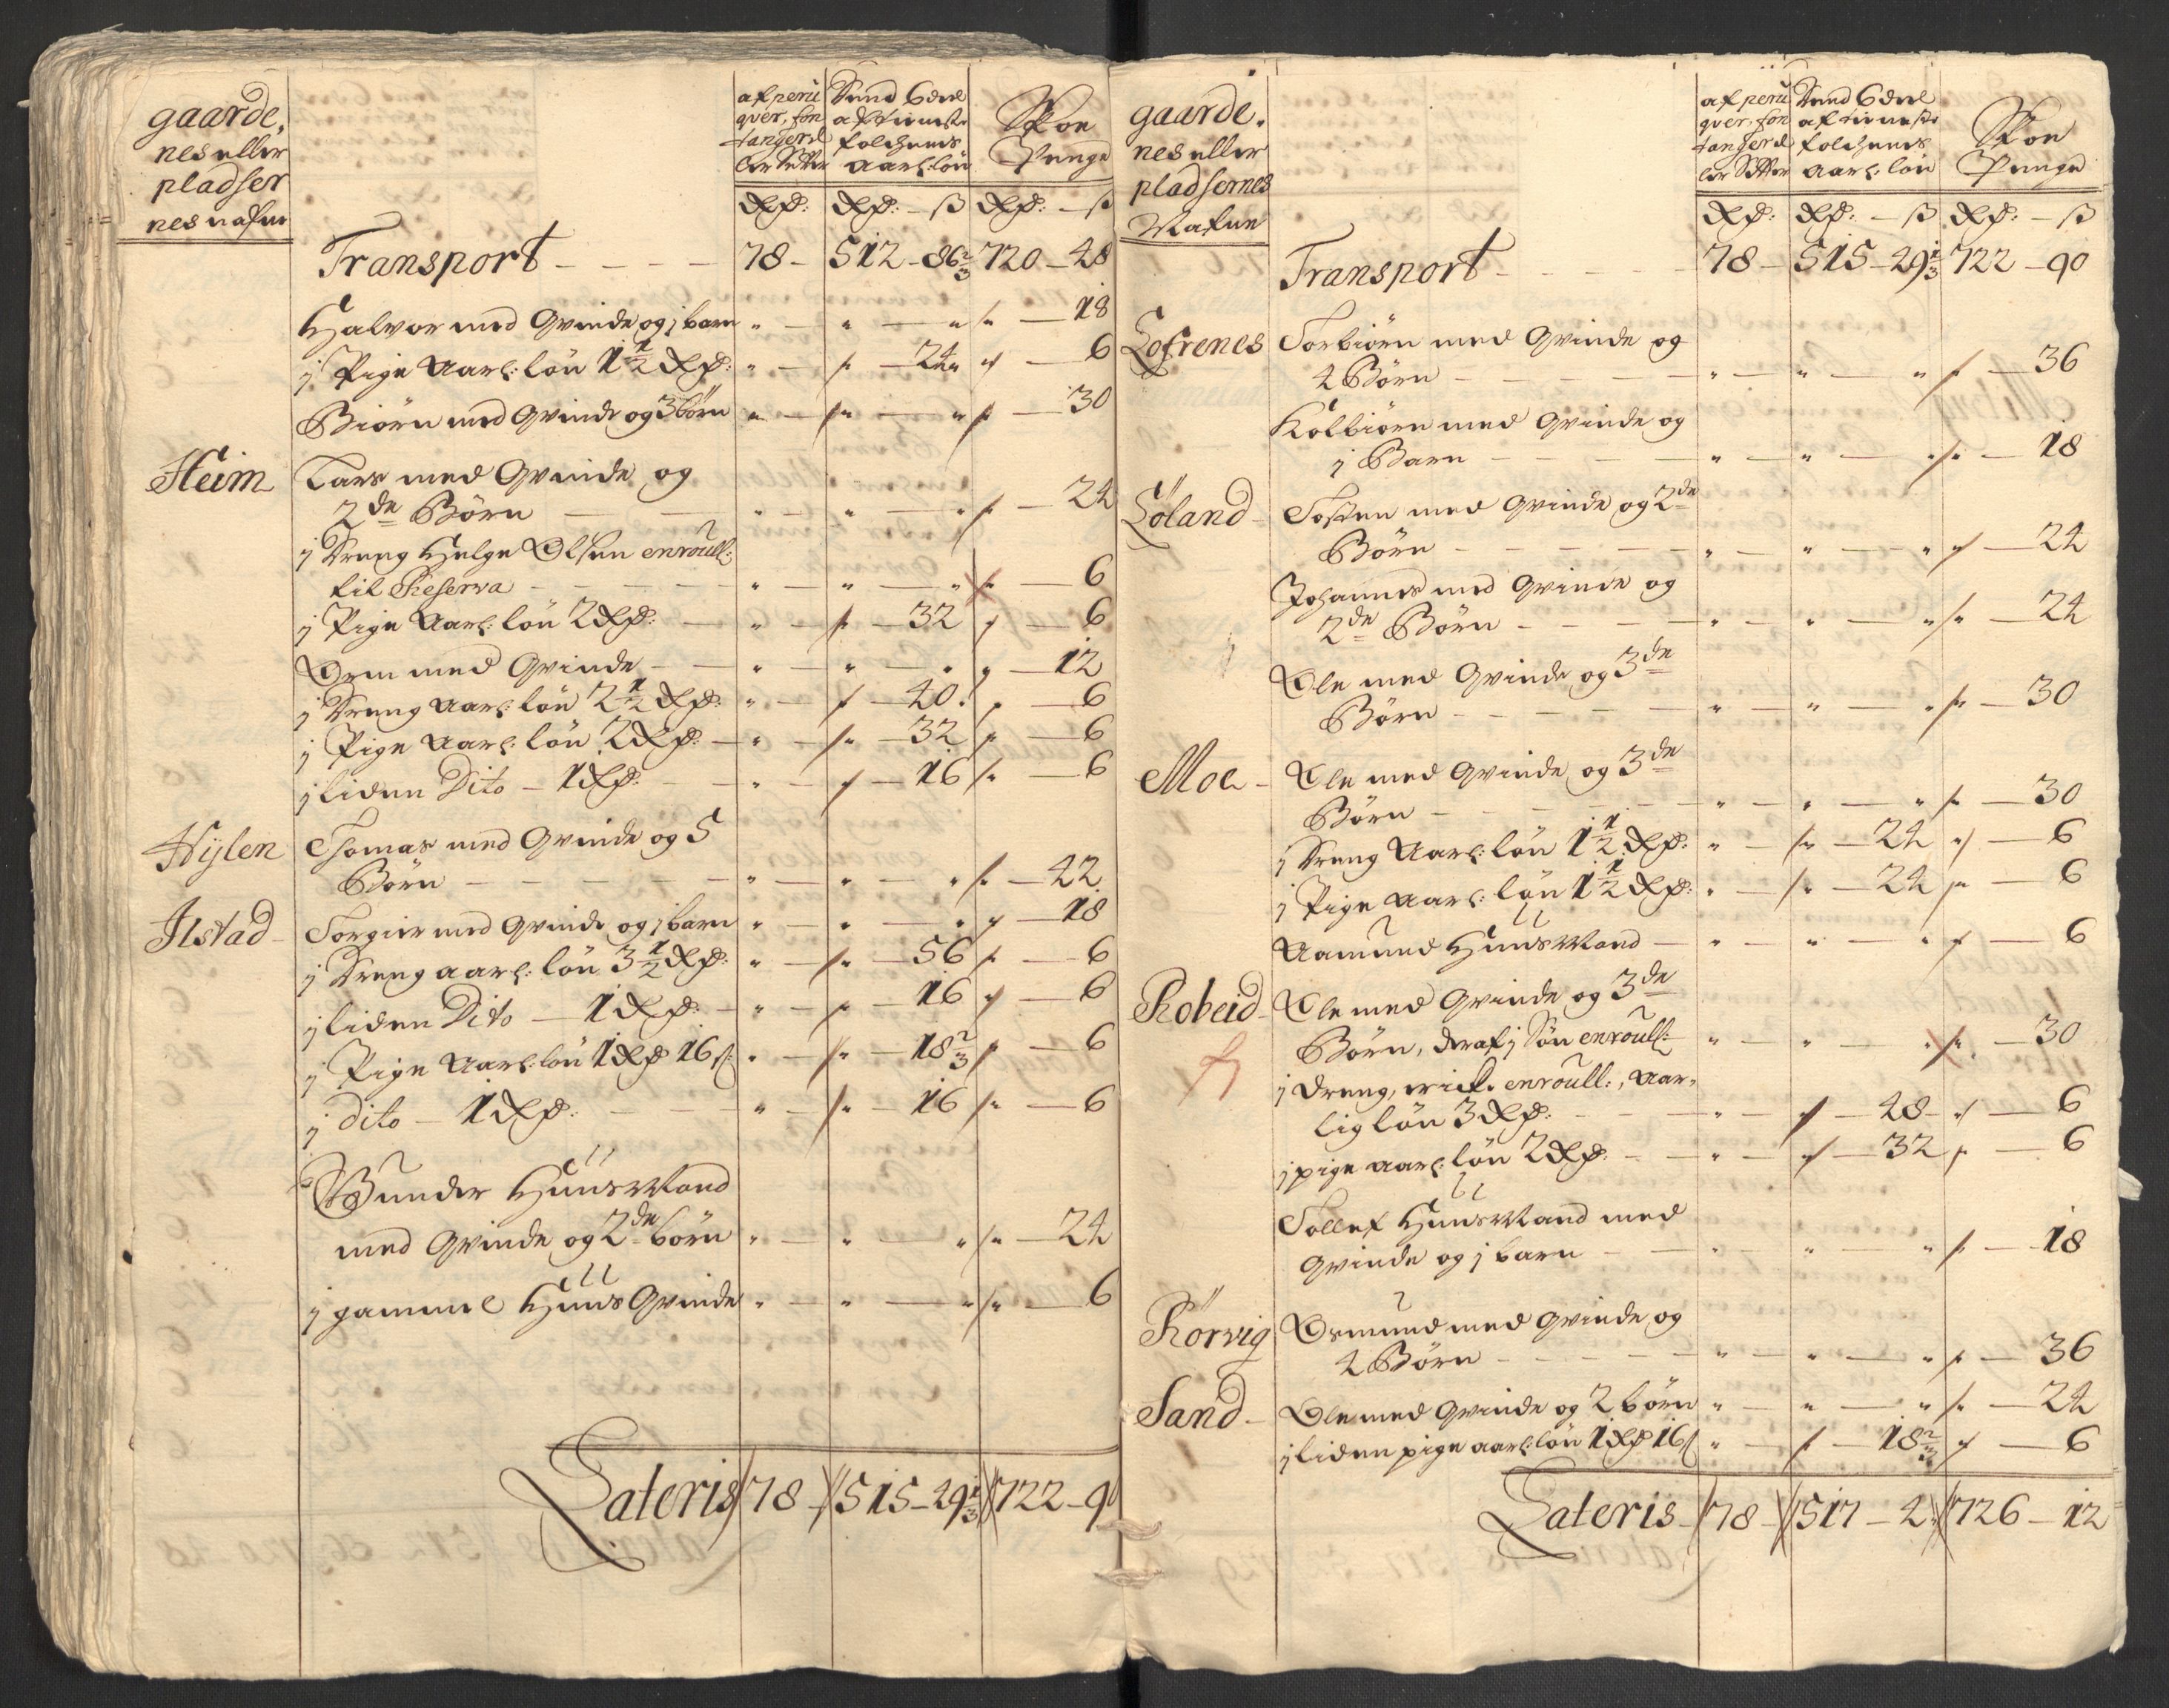 gaarde,
nes eller
pladser
nes nafne
af peru
qver, fon
tanger el
ler Setter
Send 6 deel
af tieniste
folchenis
aarl: løn
Skoe
Penge
Rdr: Rdr: – ß Rdr: – ß
Transport – – – – 78 – 512 – 86 2/3 720 – 48
Halvor med Qvinde og j barn " – " – " " – 18
j Pige Aarl: løn 1 1/2 Rdr: " – " – 24 " – 6
Biørn med Qvinde og 3 børn " – " – " " – 30
Heim Lars med Qvinde og
2de Børn – – " – " – " " – 24
j Dreng Helge Olsen enroull:
til Reserva – – – " – " – " " – 6
j Pige Aarl: løn 2 Rdr: – " – " – 32 " – 6
Orm med Qvinde – – " – " – " " – 12
j Dreng Aarl: løn 2 1/2 Rdr: " – " – 40 " – 6
j Pige Aarl: løn 2 Rdr: – " – " – 32 " – 6
j liden Dito – 1 Rdr: – – " – " – 16 " – 6
Hylen Thomas med Qvinde og 5
Børn – – – – " – " – " " – 42
Ilstad – Torgier med Qvinde og j barn " – " – " " – 18
j Dreng aarl: løn 3 1/2 Rdr: " – " – 56 " – 6
j liden Dito – 1 Rdr: – " – " – 16 " – 6
j Pige Aarl: løn 1 Rdr 16 ß: " – " – 18 2/3 " – 6
j dito – 1 Rdr: – – " – " – 16 " – 6
Gunder Huus Mand
med Qvinde og 2de børn " – " – " " – 24
j gammel Huus Qvinde " – " – " " – 6
Lateris 78 – 515 – 29 1/3 722 – 90
gaarde.
nes eller
pladsernes
Nafne
af peru
qver, fon
tanger el
ler Setter
Send 6 deel
af tieneste
folchenis
Aarl: løn
Skoe
Penge
Rdr: Rdr: – ß Rdr: – ß
Transport – – – – 78 – 515 – 29 1/3 722 – 90
Lofrenes Torbiørn med Qvinde og
4 Børn – – – – " – " – " " – 36
Kolbiørn med Qvinde og
j Barn – – – – " – " – " " – 18
Løland – Tosten med Qvinde og 2de
Børn – – – – " – " – " " – 24
Johannes med Qvinde og
2de Børn – – – – " – " – " " – 24
Ole med Qvinde og 3de
Børn – – – – " – " – " " – 30
Moe – Ole med Qvinde og 3de
Børn – – – – " – " – " " – 30
j Dreng Aarl: løn 1 1/2 Rdr: " – " – 24 " – 6
j Pige Aarl: løn 1 1/2 Rdr: " – " – 24 " – 6
Aamund Huus Mand – " – " – " " – 6
Robeid – Ole med Qvinde og 3de
Børn, deraf j Søn enroull: " – " – " " – 30
j dreng, enroull:, Aar,
lig løn 3 Rdr: – – – " – " – 48 – " – 6
j pige aarl: løn 2 Rdr: – – " – " – 32 " – 6
Tollef Huus Mand med
Qvinde og j barn – – " – " – " " – 18
Rørvig Osmund med Qvinde og
4 Børn – – – – " – " – " " – 36
Sand – Ole med Qvinde og 2 børn " – " – " " – 24
j liden pige aarl: løn 1 Rdr 16 ß " – " – 18 2/3 " – 6
Lateris – 78 – 517 – 2 726 – 12